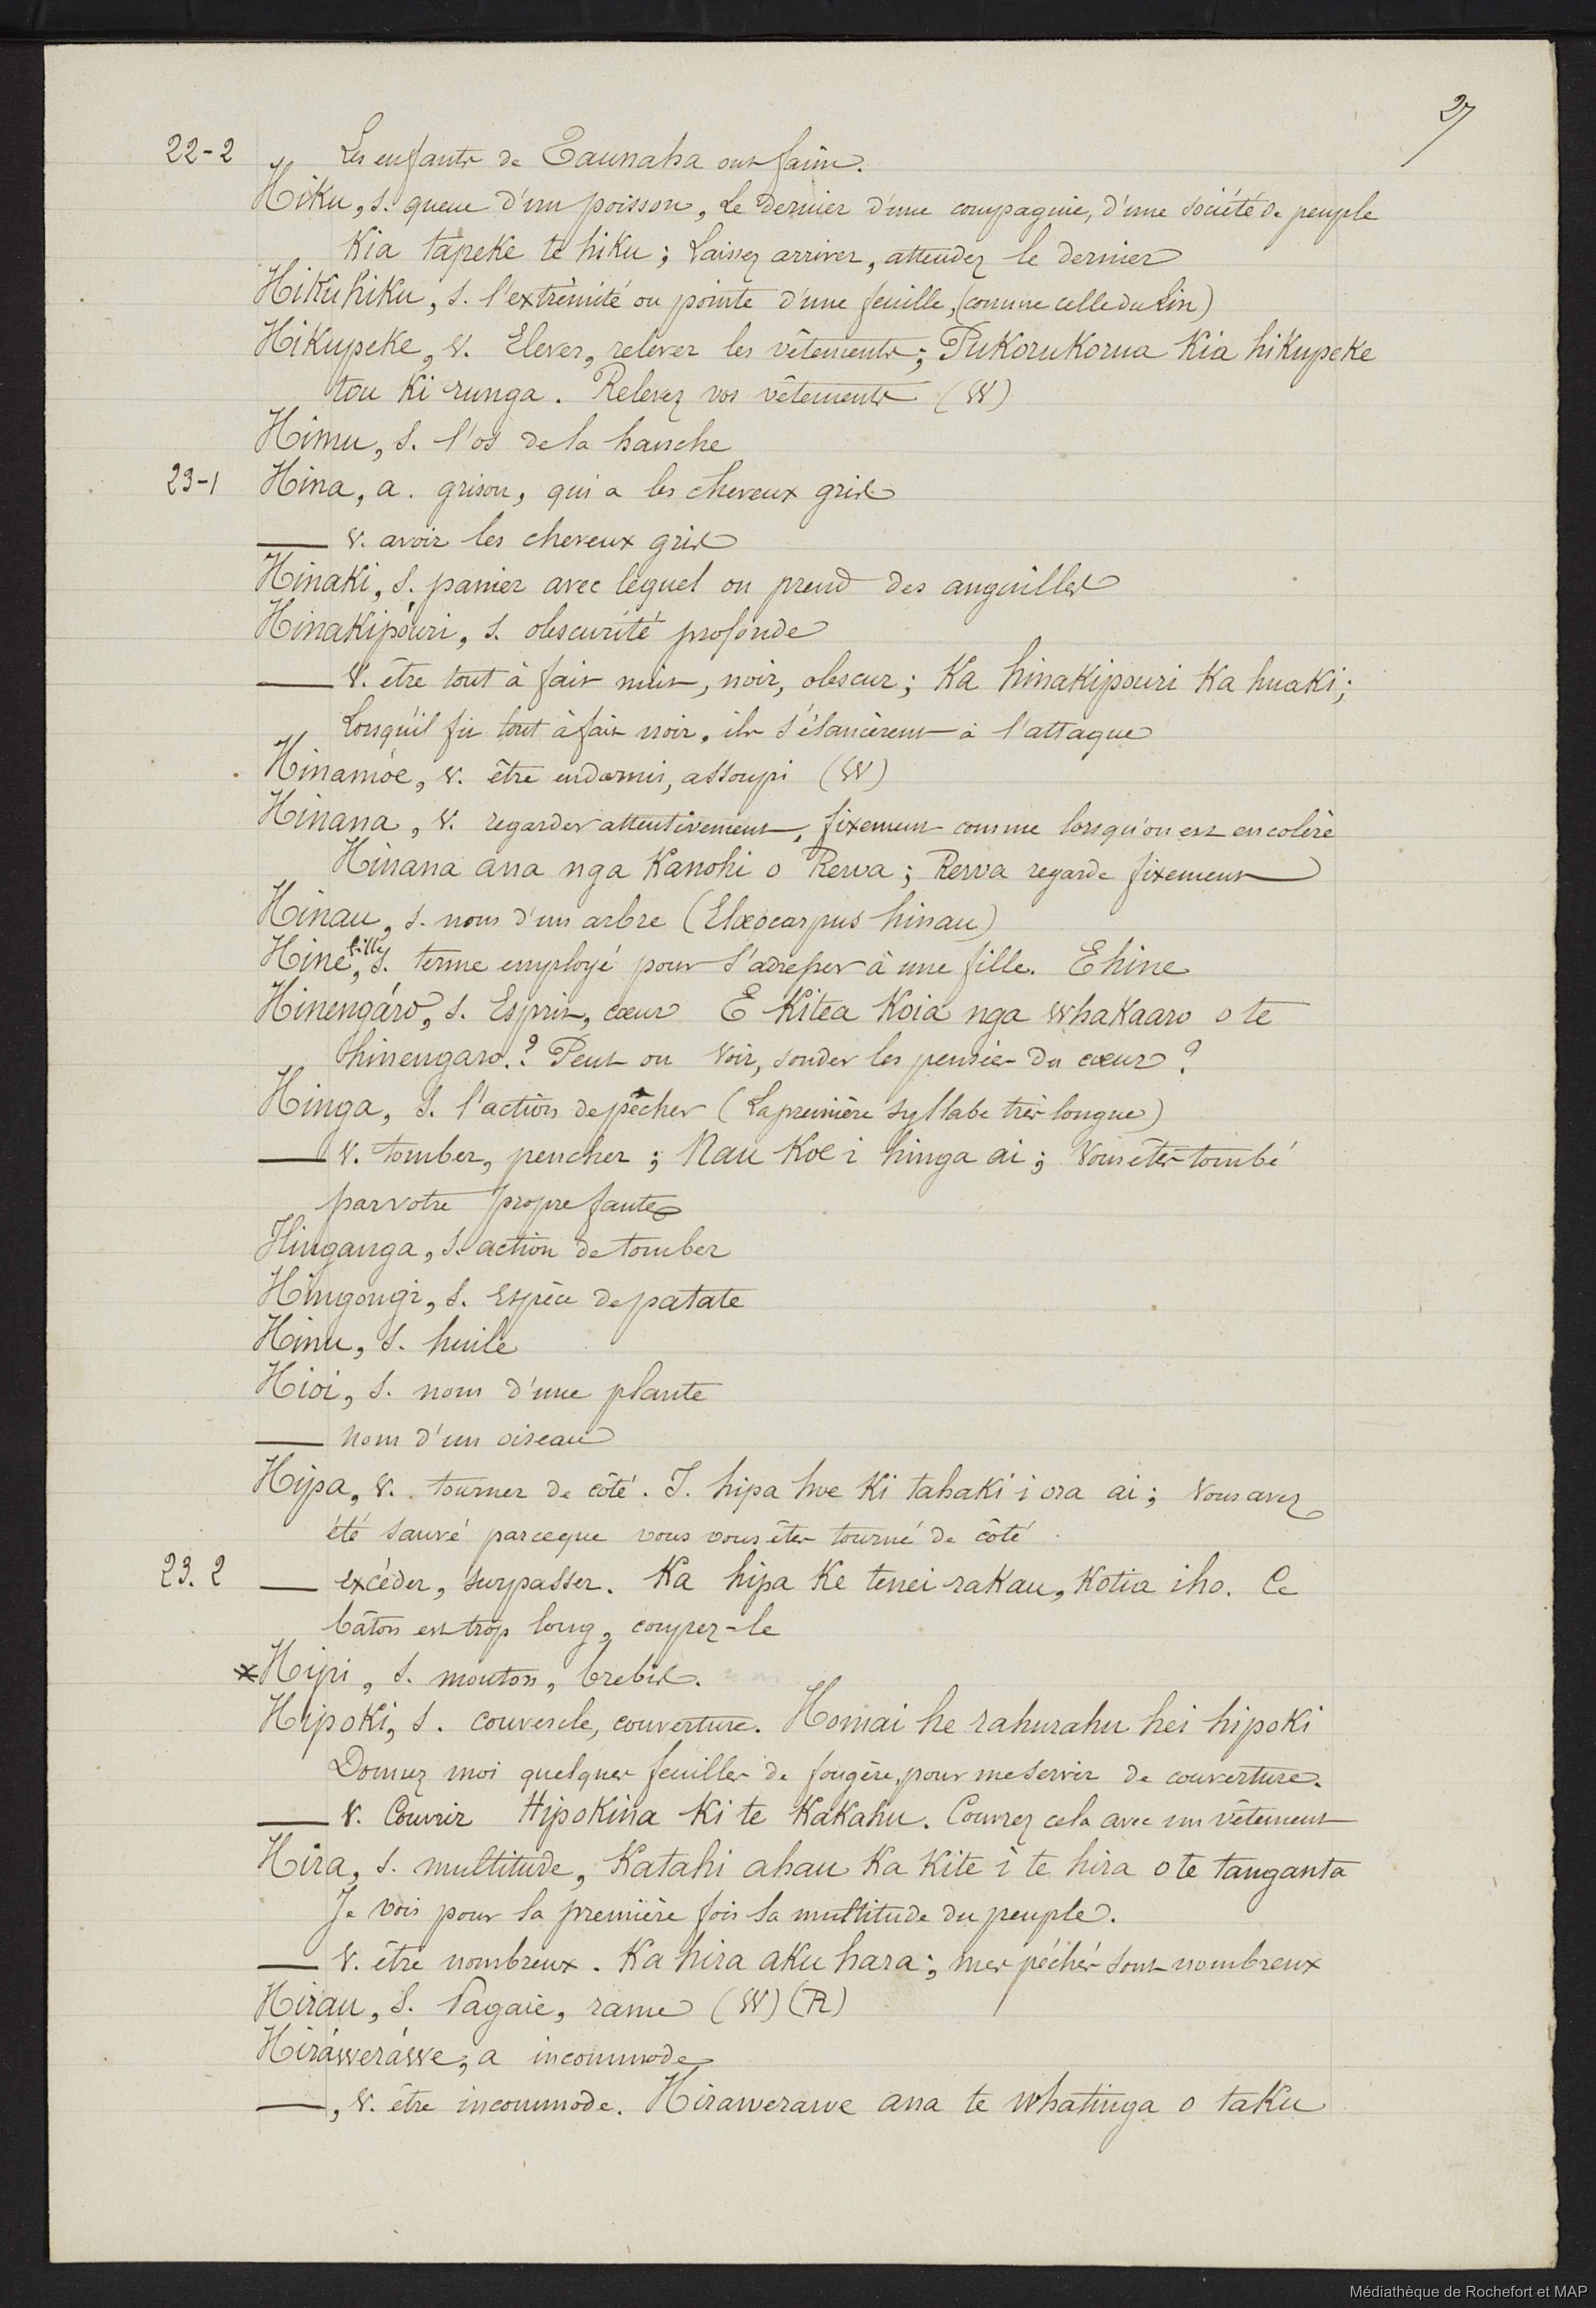 27
22-2 Les enfants de Taunaha ont faim.
Hiku, s. queue d'un poisson, Le dernier d'une compagnie, d'une société de peuple
Kia tapeke te hiku; Laissez arriver, attendez le dernier
Hikuhiku, s. l'extrêmité ou pointe d'une feuille, (comme celle du Lin)
Hikupeke, v. Elever, relever les vêtements; Pukorukorua Kia hikupeke
tou Ki runga. Relevez vos vêtements (W)
Himu, s. l'os de la hanche
23-1 Hina, a. grison, qui a les cheveux gris
— v. avoir les cheveux gris
Hinaki, s. panier avec lequel on prend des anguilles
Hinakipóuri, s. obscurité profonde
— v. être tout à fait nuit, noir, obscur; Ka hinakipouri Ka huaki;
Lorsqu'il fit tout à fait noir, ils s'élancèrent à l'attaque
Hinamóe, v. être endormis, assoupi (W)
Hinana, v. regarder attentivement, fixement comme lorsqu'on est en colère
Hinana ana nga Kanohi o Rewa; Rewa regarde fixement
Hinau, s. nom d'un arbre (Elæocarpus hinau)
Hine, fille, s. terme employé pour s'adresser à une fille. E hine
Hinengáro, s. Esprit, cœur E Kitea Koia nga whakaaro o te
hinengaro.? Peut on voir, sonder les pensées du cœur?
Hinga, s. l'action de pêcher (La première syllabe très longue)
— v. tomber, pencher; Nau Koe i hinga ai; Vous êtes tombé
par votre propre faute
Hinganga, s. action de tomber
Hingongi, s. Espèce de patate
Hinu, s. huile
Hioi, s. nom d'une plante
— nom d'un oiseau
Hipa, v. tourner de côté. I. hipa hoe Ki tahaki i ora ai; Vous avez
été sauvé parceque vous vous êtes tourné de côté.
23. 2 — excéder, surpasser. Ka hipa Ke tenei rakau, Kotia iho. Ce
bâton est trop long, coupez-le
x Hipi, s. mouton, brebis.
Hipoki, s. couvercle, couverture. Homai he rahurahu hei hipoki
Donnez moi quelques feuilles de fougère, pour me servir de couverture.
— v. Couvrir Hipokina Ki te Kakahu. Couvrez cela avec un vêtement
Hira, s. multitude, Katahi ahau Ka Kite i te hira o te tanganta
Je vois pour la première fois la multitude du peuple.
— v. être nombreux. Ka hira aku hara; mes péchés sont nombreux
Hirau, s. Pagaie, rame (W) (R)
Hiráweráwe, a incommode
—, v. être incommode. Hirawerawe ana te whatinga o taku
Médiathèque de Rochefort et MAP